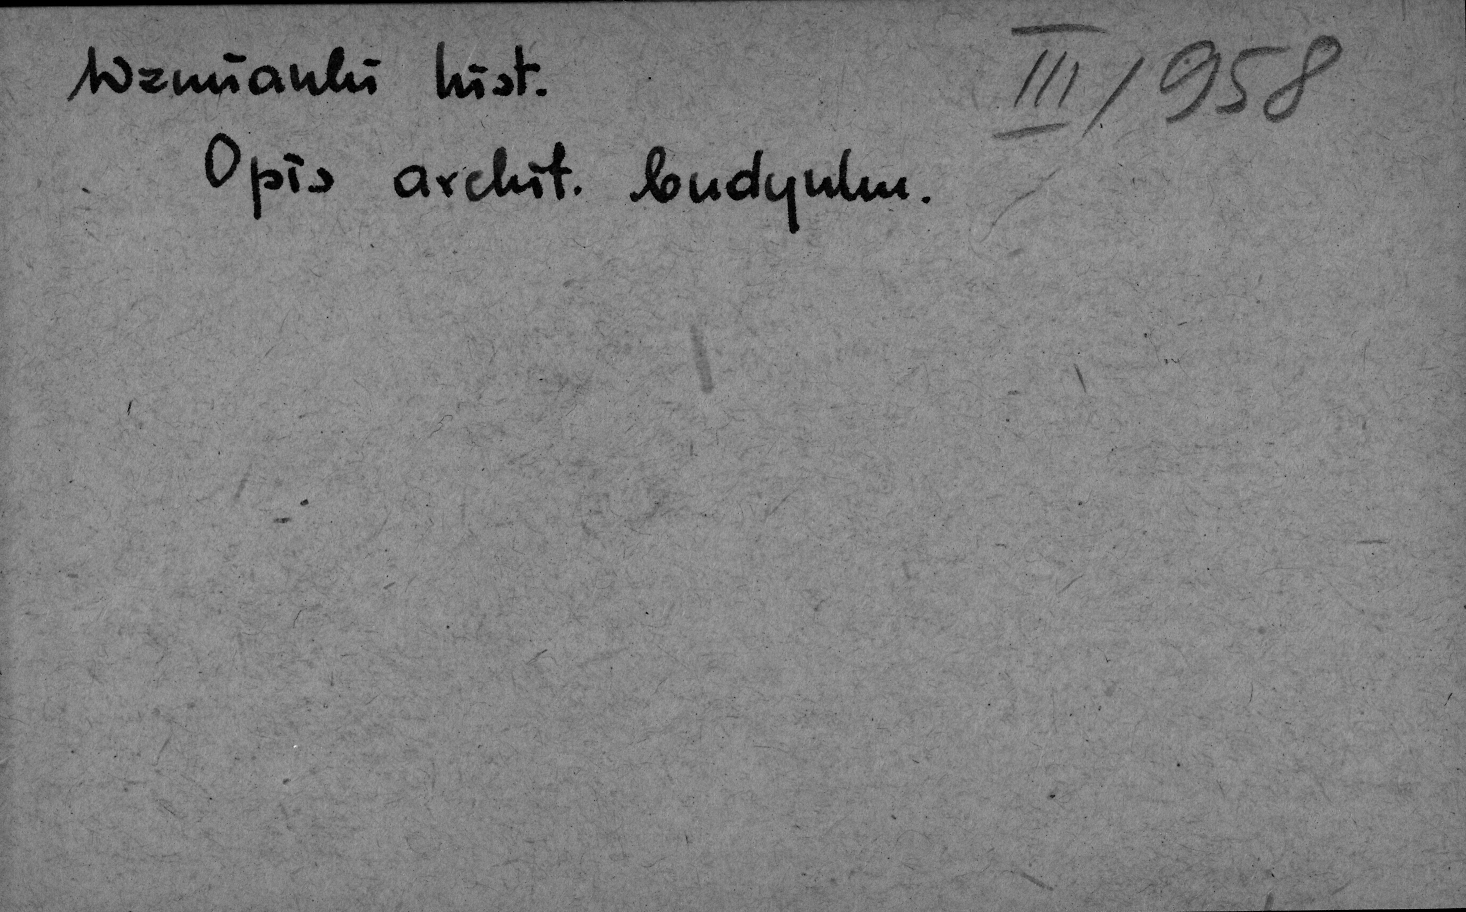 Wzmianki hist.
III/958
Opis archit. budynku.